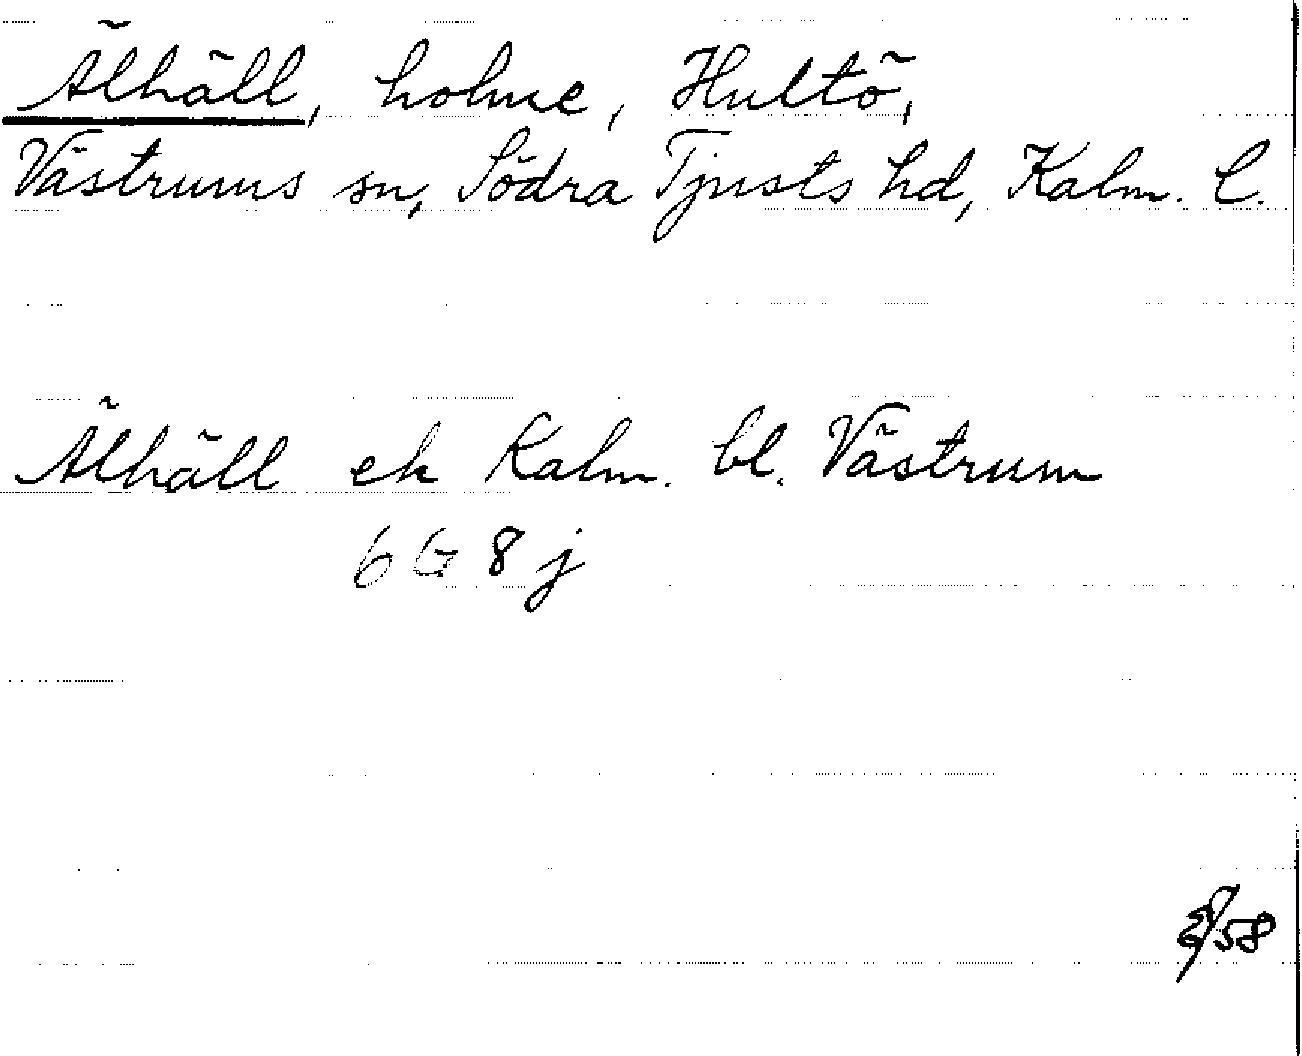 Älhäll, holme, Hultö,
Västrums sn, Södra Tjusts hd, Kalm. l.
Älhäll ek Kalm. bl. Västrum
6 G 8 j